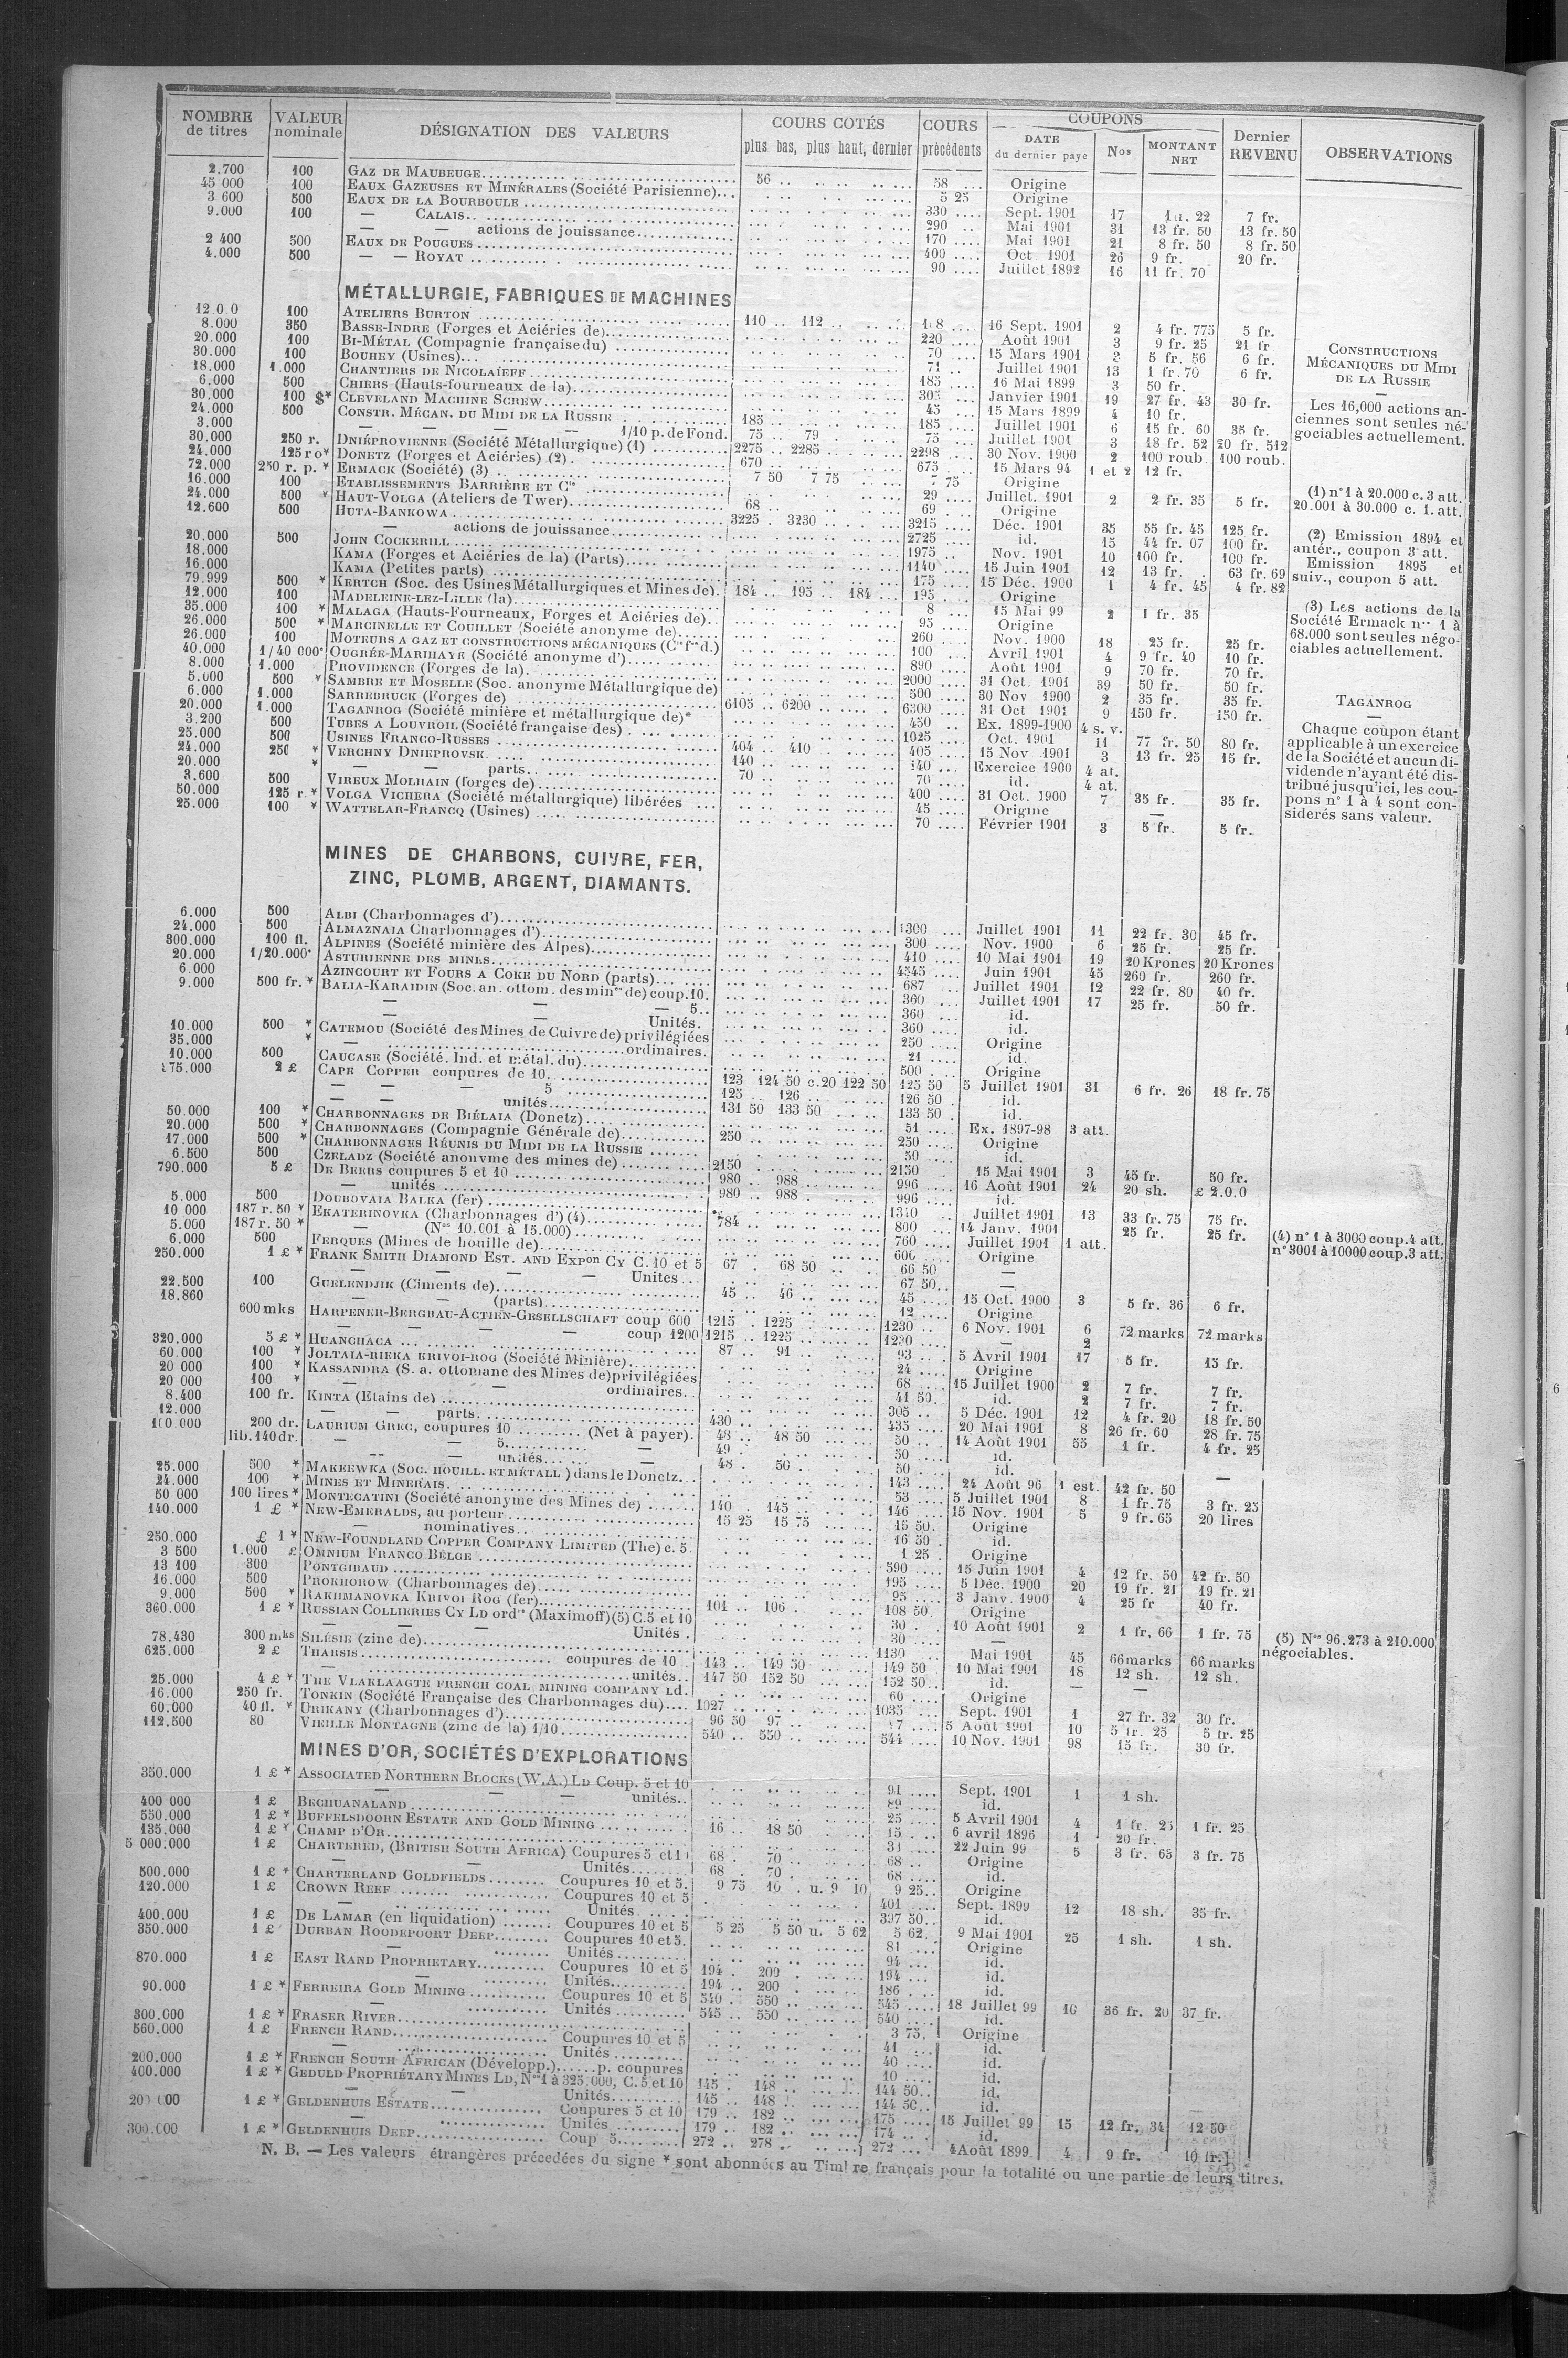 NOMBRE de titres | VALEUR nominale | DÉSIGNATION DES VALEURS | COURS COTÉS plus bas, plus haut, dernier | COURS précédents | COUPONS DATE du dernier payé | Nos | MONTANT NET | Dernier REVENU | OBSERVATIONS
2.700 100 GAZ DE MAUBEUGE 56 58 Origine
45 000 100 EAUX GAZEUSES ET MINÉRALES (Société Parisienne) 5 25 Origine
3 600 500 EAUX DE LA BOURBOULE 330 Sept. 1901 17 22 7 fr.
9.000 100 — CALAIS 290 Mai 1901 31 13 fr. 50 13 fr. 50
— — actions de jouissance 170 Mai 1901 21 8 fr. 50 8 fr. 50
2 400 500 EAUX DE POUGUES 400 Oct 1901 26 9 fr. 20 fr.
4.000 500 — — ROYAT 90 Juillet 1892 16 11 fr. 70
MÉTALLURGIE, FABRIQUES DE MACHINES
100 ATELIERS BURTON 110 112 16 Sept. 1901 2 4 fr. 775 5 fr.
8.000 350 BASSE-INDRE (Forges et Aciéries de) 220 Août 1901 3 9 fr. 25 21 fr
20.000 100 BI-MÉTAL (Compagnie française du) 70 15 Mars 1901 5 fr. 56 6 fr.
30.000 100 BOUHEY (Usines) 71 Juillet 1901 13 1 fr. 70 6 fr.
18.000 1.000 CHANTIERS DE NICOLAÏEFF 185 16 Mai 1899 3 50 fr.
6.000 500 CHIERS (Hauts-fourneaux de la) 305 Janvier 1901 19 27 fr. 43 30 fr.
30.000 100 $* CLEVELAND MACHINE SCREW 45 15 Mars 1899 4 10 fr.
24.000 500 CONSTR. MÉCAN. DU MIDI DE LA RUSSIE 185 185 Juillet 1901 6 15 fr. 60 35 fr.
3.000 — — — — 1/10 p. de Fond. 75 79 75 Juillet 1901 3 18 fr. 52 20 fr. 512
30.000 250 r. DNIÉPROVIENNE (Société Métallurgique) (1) 2275 2285 2298 30 Nov. 1900 2 100 roub. 100 roub.
24.000 125 ro* DONETZ (Forges et Aciéries) (2) 670 675 15 Mars 94 1 et 2 12 fr.
72.000 250 r. p. * ERMACK (Société) (3) 7 50 7 75 7 75 Origine
16.000 100 ETABLISSEMENTS BARRIÈRE ET Cie 29 Juillet. 1901 2 2 fr. 35 5 fr.
24.000 500 * HAUT-VOLGA (Ateliers de Twer) 68 69 Origine
12.600 500 HUTA-BANKOWA 3225 3230 3215 Déc. 1901 35 55 fr. 45 125 fr.
— actions de jouissance 2725 id. 15 44 fr. 07 100 fr.
20.000 500 JOHN COCKERILL 1975 Nov. 1901 10 100 fr. 100 fr.
18.000 KAMA (Forges et Aciéries de la) (Parts) 1140 15 Juin 1901 12 13 fr. 63 fr. 69
16.000 KAMA (Petites parts) 175 15 Déc. 1900 1 4 fr. 45 4 fr. 82
79.999 500 * KERTCH (Soc. des Usines Métallurgiques et Mines de) 184 195 184 195 Origine
12.000 100 MADELEINE-LEZ-LILLE (la) 8 15 Mai 99 2 1 fr. 35
35.000 100 * MALAGA (Hauts-Fourneaux, Forges et Aciéries de) 95 Origine
26.000 500 * MARCINELLE ET COUILLET (Société anonyme de) 260 Nov. 1900 18 25 fr. 25 fr.
26.000 100 MOTEURS A GAZ ET CONSTRUCTIONS MÉCANIQUES (Cie fse d.) 100 Avril 1901 4 9 fr. 40 10 fr.
40.000 1/40 000e OUGRÉE-MARIHAYE (Société anonyme d') 890 Août 1901 9 70 fr. 70 fr.
8.000 1.000 PROVIDENCE (Forges de la) 2000 31 Oct. 1901 39 50 fr. 50 fr.
5.000 500 * SAMBRE ET MOSELLE (Soc. anonyme Métallurgique de) 500 30 Nov 1900 2 35 fr. 35 fr.
6.000 1.000 SARREBRUCK (Forges de) 6105 6200 6300 31 Oct 1901 9 150 fr. 150 fr.
20.000 1.000 TAGANROG (Société minière et métallurgique de)* 450 Ex. 1899-1900 4 s. v.
3.200 500 TUBES A LOUVROIL (Société française des) 1025 Oct. 1901 11 77 fr. 50 80 fr.
25.000 500 USINES FRANCO-RUSSES 404 410 405 15 Nov 1901 3 13 fr. 25 15 fr.
24.000 250 * VERCHNY DNIEPROVSK 140 140 Exercice 1900 4 at.
20.000 * — — parts 70 70 id. 4 at.
3.600 500 VIREUX MOLHAIN (forges de) 400 31 Oct. 1900 7 35 fr. 35 fr.
50.000 125 r. * VOLGA VICHERA (Société métallurgique) libérées 45 Origine
25.000 100 * WATTELAR-FRANCQ (Usines) 70 Février 1901 3 5 fr. 5 fr.
CONSTRUCTIONS
MÉCANIQUES DU MIDI
DE LA RUSSIE
Les 16,000 actions an-
ciennes sont seules né-
gociables actuellement.
(1) n° 1 à 20.000 c. 3 att.
20.001 à 30.000 c. 1. att.
(2) Emission 1894 et
antér., coupon 3 att.
Emission 1895 et
suiv., coupon 5 att.
(3) Les actions de la
Société Ermack nos 1 à
68.000 sont seules négo-
ciables actuellement.
TAGANROG
Chaque coupon étant
applicable à un exercice
de la Société et aucun di-
vidende n'ayant été dis-
tribué jusqu'ici, les cou-
pons n° 1 à 4 sont con-
siderés sans valeur.
MINES DE CHARBONS, CUIVRE, FER,
ZINC, PLOMB, ARGENT, DIAMANTS.
6.000 500 ALBI (Charbonnages d') 1300 Juillet 1901 11 22 fr. 30 45 fr.
24.000 500 ALMAZNAIA Charbonnages d') 300 Nov. 1900 6 25 fr. 25 fr.
300.000 100 fl. ALPINES (Société minière des Alpes) 410 10 Mai 1901 19 20 Krones 20 Krones
20.000 1/20.000e ASTURIENNE DES MINES 4545 Juin 1901 45 260 fr. 260 fr.
6.000 AZINCOURT ET FOURS A COKE DU NORD (parts) 687 Juillet 1901 12 22 fr. 80 40 fr.
9.000 500 fr. * BALIA-KARAIDIN (Soc. an. ottom. des mines de) coup. 10. 360 Juillet 1901 17 25 fr. 50 fr.
— — — 5 360 id.
Unités. 360 id.
10.000 500 * CATEMOU (Société des Mines de Cuivre de) privilégiées 250 Origine
35.000 * — ordinaires. 21 id.
10.000 500 CAUCASE (Société. Ind. et métal. du) 500 Origine
175.000 2 £ CAPE COPPER coupures de 10. 123 124 50 c. 20 122 50 125 50 5 Juillet 1901 31 6 fr. 26 18 fr. 75
— — — 5 125 126 126 50 id.
— — unités 131 50 133 50 133 50 id.
50.000 100 * CHARBONNAGES DE BIÉLAIA (Donetz) 51 Ex. 1897-98 3 att.
20.000 500 * CHARBONNAGES (Compagnie Générale de) 250 250 Origine
17.000 500 * CHARBONNAGES RÉUNIS DU MIDI DE LA RUSSIE 50 id.
6.500 500 CZELADZ (Société anonyme des mines de) 2150 2150 15 Mai 1901 3 45 fr. 50 fr.
790.000 5 £ DE BEERS coupures 5 et 10 980 988 996 16 Août 1901 24 20 sh. £ 2.0.0
— unités 980 988 996 id.
5.000 500 DOUBOVAIA BALKA (fer) Juillet 1901 13 33 fr. 75 75 fr.
10 000 187 r. 50 * EKATERINOVKA (Charbonnages d') (4) 784 800 14 Janv. 1901 25 fr. 25 fr.
5.000 187 r. 50 * — (Nos 10.001 à 15.000) 760 Juillet 1901 1 att.
6.000 500 FERQUES (Mines de houille de) 600 Origine
250.000 1 £ * FRANK SMITH DIAMOND EST. AND EXPon CY C. 10 et 5 67 68 50 66 50 —
— — — — Unites 67 50 —
22.500 100 GUELENDJIK (Ciments de) 45 46 45 15 Oct. 1900 3 5 fr. 36 6 fr.
18.860 — — (parts) 12 Origine
600 mks HARPENER-BERGBAU-ACTIEN-GESELLSCHAFT coup 600 1215 1225 1230 6 Nov. 1901 6 72 marks 72 marks
— — — — coup 1200 1215 1225 1230 — 2
320.000 5 £ * HUANCHACA 87 91 93 5 Avril 1901 17 5 fr. 15 fr.
60.000 100 * JOLTAIA-RIEKA KRIVOI-ROG (Société Minière) 24 Origine
20 000 100 * KASSANDRA (S. a. ottomane des Mines de) privilégiées 68 15 Juillet 1900 2 7 fr. 7 fr.
20 000 100 * — — ordinaires 41 50 id. 2 7 fr. 7 fr.
8.400 100 fr. KINTA (Etains de) 305 5 Déc. 1901 12 4 fr. 20 18 fr. 50
12.000 — — parts 430 435 20 Mai 1901 8 26 fr. 60 28 fr. 75
200 dr. LAURIUM GREC, coupures 10 (Net à payer). 48 48 50 50 14 Août 1901 55 1 fr. 4 fr. 25
lib. 140 dr. — — 5 — 49 50 id.
— — unités — 48 50 50 id.
25.000 500 * MAKEEWKA (SOC. HOUILL. ET MÉTALL) dans le Donetz 143 24 Août 96 1 est. 42 fr. 50 —
24.000 100 * MINES ET MINERAIS 53 5 Juillet 1901 8 1 fr. 75 3 fr. 25
50 000 100 lires * MONTECATINI (Société anonyme des Mines de) 140 145 146 15 Nov. 1901 5 9 fr. 65 20 lires
140.000 1 £ * NEW-EMERALDS, au porteur 15 25 15 75 15 50 Origine
— nominatives 16 50 id.
250.000 £ 1 * NEW-FOUNDLAND COPPER COMPANY LIMITED (The) c. 5 1 25 Origine
3 500 1.000 £ OMNIUM FRANCO BELGE 590 15 Juin 1901 4 12 fr. 50 42 fr. 50
13 100 300 PONTGIBAUD 195 5 Déc. 1900 20 19 fr. 21 19 fr. 21
16.000 500 PROKHOROW (Charbonnages de) 95 3 Janv. 1900 4 25 fr 40 fr.
9.000 500 * RAKHMANOVKA KRIVOI ROG (fer) 101 106 108 50 Origine
360.000 1 £ * RUSSIAN COLLIERIES CY LD ordre (Maximoff) (5) C. 5 et 10 30 10 Août 1901 2 1 fr. 66 1 fr. 75
— — — Unités 30 —
78.430 300 mks SILÉSIE (zinc de) 1130 Mai 1901 45 66 marks 66 marks
625.000 2 £ THARSIS coupures de 10 143 149 50 149 50 10 Mai 1901 18 12 sh. 12 sh.
— unités 147 50 152 50 152 50 id. — —
25.000 4 £ * THE VLAKLAAGTE FRENCH COAL MINING COMPANY Ld. 60 Origine
16.000 250 fr. TONKIN (Société Française des Charbonnages du) 1027 1035 Sept. 1901 1 27 fr. 32 30 fr.
60.000 40 fl. * URIKANY (Charbonnages d') 96 50 97 5 Août 1901 10 5 fr. 25 5 fr. 25
112.500 80 VIEILLE MONTAGNE (zinc de la) 1/10 540 550 544 10 Nov. 1901 98 15 fr. 30 fr.
(4) n° 1 à 3000 coup. 4 att.
n° 3001 à 10000 coup. 3 att.
(5) Nos 96.273 à 210.000
négociables.
MINES D'OR, SOCIÉTÉS D'EXPLORATIONS
350.000 1 £ * ASSOCIATED NORTHERN BLOCKS (W.A.) LD Coup. 5 et 10 91 Sept. 1901 1 1 sh.
— — unités 89 id.
400 000 1 £ BECHUANALAND 25 5 Avril 1901 4 1 fr. 25 1 fr. 25
550.000 1 £ * BUFFELSDOORN ESTATE AND GOLD MINING 16 18 50 15 6 avril 1896 1 20 fr.
135.000 1 £ * CHAMP D'OR 22 Juin 99 5 3 fr. 65 3 fr. 75
5 000.000 1 £ CHARTERED, (BRITISH SOUTH AFRICA) Coupures 5 et 10 68 70 68 Origine
— — Unités 68 70 68 id.
500.000 1 £ * CHARTERLAND GOLDFIELDS Coupures 10 et 5 9 75 10 u. 9 10 9 25 Origine
120.000 1 £ CROWN REEF Coupures 10 et 5 401 Sept. 1899 12 18 sh. 35 fr.
— Unités 397 50 id.
400.000 1 £ DE LAMAR (en liquidation) Coupures 10 et 5 5 25 5 50 u. 5 62 5 62 9 Mai 1901 25 1 sh. 1 sh.
350.000 1 £ DURBAN ROODEPOORT DEEP Coupures 10 et 5. 81 Origine
— Unités 94 id.
870.000 1 £ EAST RAND PROPRIETARY Coupures 10 et 5 194 200 194 id.
— Unités 194 200 186 id.
90.000 1 £ * FERREIRA GOLD MINING Coupures 10 et 5 540 550 545 18 Juillet 99 16 36 fr. 20 37 fr.
— Unités 545 550 540 id.
300.000 1 £ * FRASER RIVER 3 75 Origine
560.000 1 £ FRENCH RAND Coupures 10 et 5 41 id.
— Unités 40 id.
200.000 1 £ * FRENCH SOUTH AFRICAN (Développ.) p. coupures 10 id.
400.000 1 £ * GEDULD PROPRIÉTARY MINES LD, Nos 1 à 325.000, C. 5 et 10 145 148 144 50 id.
— — Unités 145 148 144 50 id.
200 000 1 £ * GELDENHUIS ESTATE Coupures 5 et 10 179 182 175 15 Juillet 99 15 12 fr. 34 12 50
— Unités 179 182 174 id.
300.000 1 £ * GELDENHUIS DEEP Coup 5 272 278 272 4 Août 1899 4 9 fr. 10 fr.
N. B. — Les valeurs étrangères précédées du signe * sont abonnées au Timbre français pour la totalité ou une partie de leurs titres.
6